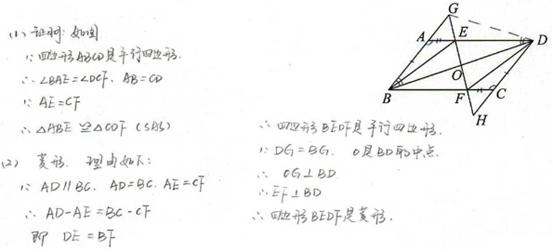 (1) 证明: 如图
∵ 四边形ABCD是平行四边形.
∴ ∠BAE=∠DCF, AB=CD
∵ AE=CF
∴ △ABE ≌ △CDF (SAS)
(2) 菱形. 理由如下:
∵ AD∥BC, AD=BC, AE=CF
∴ AD-AE=BC-CF
即 DE=BF
∴ 四边形BEDF是平行四边形.
∵ DG=BG, O是BD的中点.
∴ OG⊥BD
∴ EF⊥BD
∴ 四边形BEDF是菱形.
G
A
E
D
O
B
F
C
H